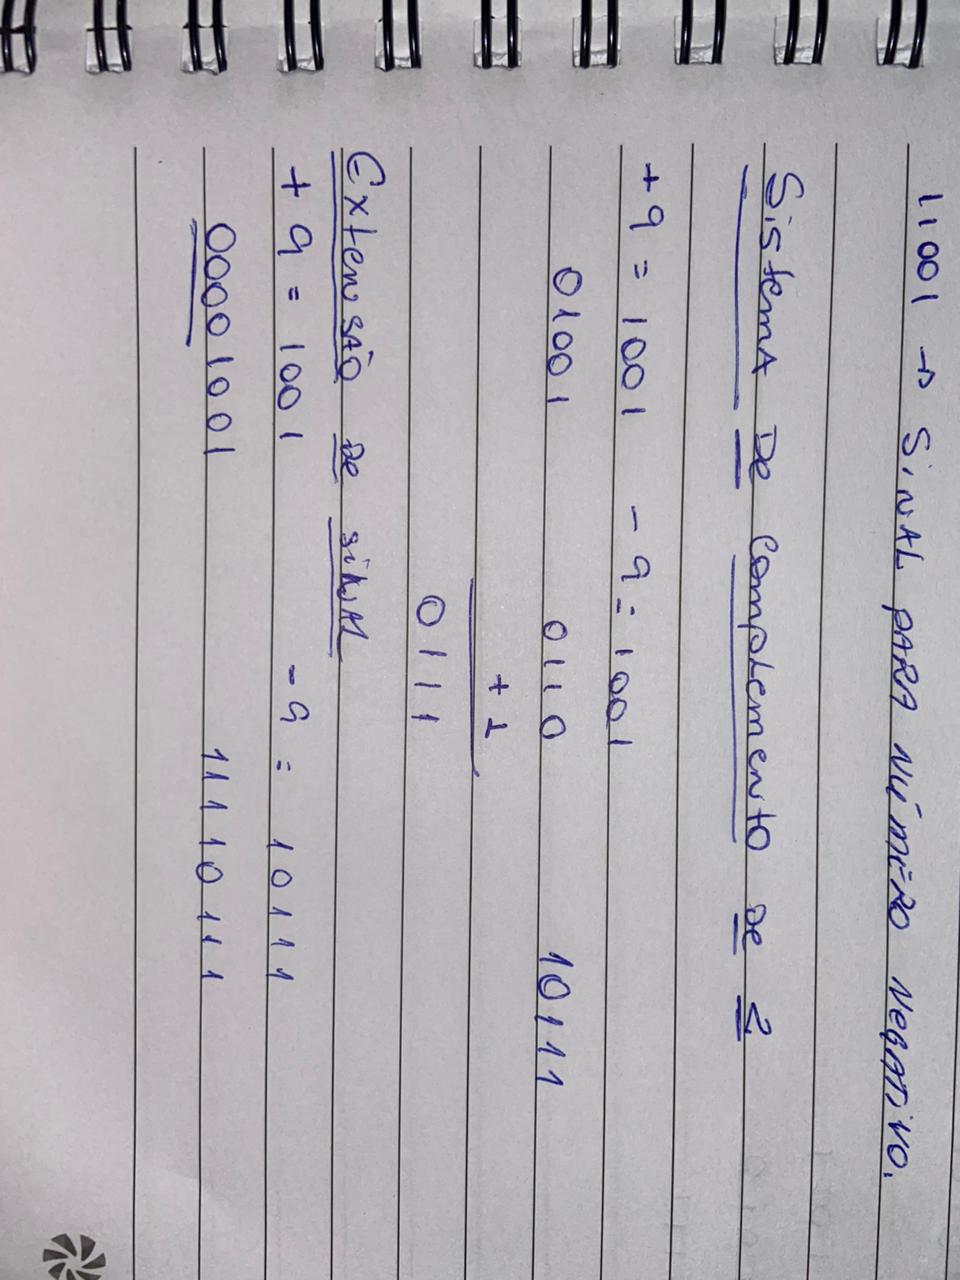 11001 → SiNAL PARA NÚMERO NEGATIVO.
SistemA De Complemento De 2
+9 = 1001 - 9 = 1001
01001 0110 10111
+1
0111
ExtensÃO De siNAL
+ 9 = 1001 - 9 = 10111
00001001 11110111